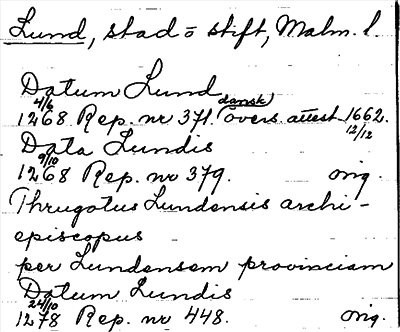 Lund, stad o stift, Malm. l.
Datum Lund
4/6 dansk
1268 Rep. nr 371. övers. attest. 1662.
12/12
Data Lundis
9/10
1268 Rep. nr 379. orig.
Thrugotus Lundensis archi-
episcopus
per Lundensem provinciam
Datum Lundis
24/10
1278 Rep. nr 448. orig.